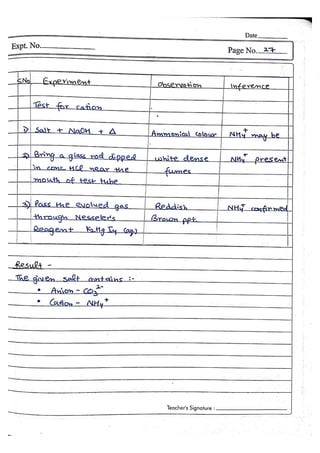 Date
Expt. No.
Page No. 27
S.No Experiment Observation Inference
Test for cation
1) Salt + NaOH + Δ Ammonical colour NH4+ may be
2) Bring a glass rod dipped white dense NH4+ present
in conc HCl near the fumes
mouth of test tube
3) Pass the evolved gas Reddish NH4+ confirmed
through Nesseler's Brown ppt.
Reagent K2HgI4 (aq)
Result -
The given salt contains :-
• Anion - CO3 2-
• Cation - NH4+
Teacher's Signature :